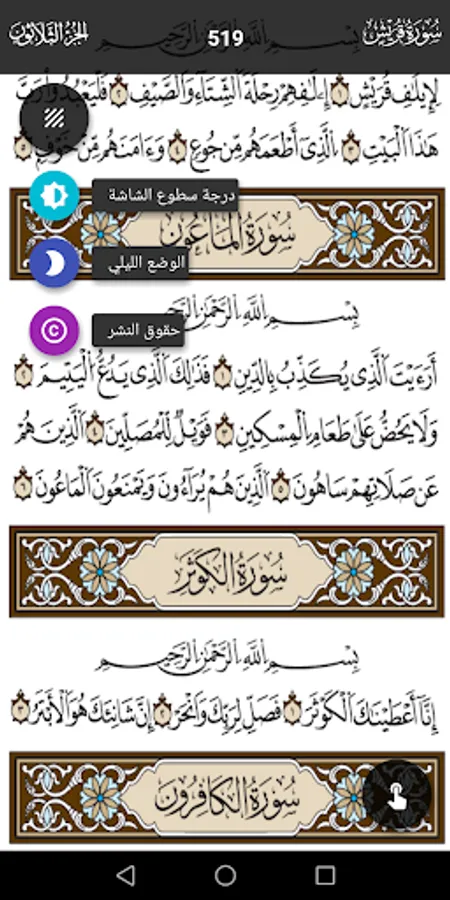 سُورَةُ قُرَيْشٍ
519
الجُزْءُ الثَّلَاثُونَ
بِسْمِ اللَّهِ الرَّحْمَٰنِ الرَّحِيمِ
لِإِيلَٰفِ قُرَيْشٍ ١ إِۦلَٰفِهِمْ رِحْلَةَ الشِّتَآءِ وَالصَّيْفِ ٢ فَلْيَعْبُدُواْ رَبَّ
هَٰذَا الْبَيْتِ ٣ الَّذِي أَطْعَمَهُم مِّن جُوعٍ ٤ وَءَامَنَهُم مِّنْ خَوْفٍ ٥
درجة سطوع الشاشة
سُورَةُ الْمَاعُونِ
الوضع الليلي
حقوق النشر
بِسْمِ اللَّهِ الرَّحْمَٰنِ الرَّحِيمِ
أَرَءَيْتَ الَّذِي يُكَذِّبُ بِالدِّينِ ١ فَذَٰلِكَ الَّذِي يَدُعُّ الْيَتِيمَ ٢
وَلَا يَحُضُّ عَلَىٰ طَعَامِ الْمِسْكِينِ ٣ فَوَيْلٌ لِّلْمُصَلِّينَ ٤ الَّذِينَ هُمْ
عَن صَلَاتِهِمْ سَاهُونَ ٥ الَّذِينَ هُمْ يُرَآءُونَ وَيَمْنَعُونَ الْمَاعُونَ ٦
سُورَةُ الْكَوْثَرِ
بِسْمِ اللَّهِ الرَّحْمَٰنِ الرَّحِيمِ
إِنَّآ أَعْطَيْنَٰكَ الْكَوْثَرَ ١ فَصَلِّ لِرَبِّكَ وَانْحَرْ ٢ إِنَّ شَانِئَكَ هُوَ الْأَبْتَرُ ٣
سُورَةُ الْكَافِرُونَ